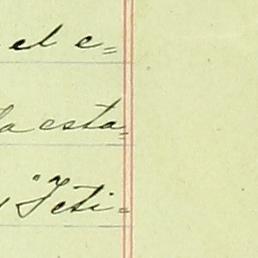 el e=
la esta=
"Feti=